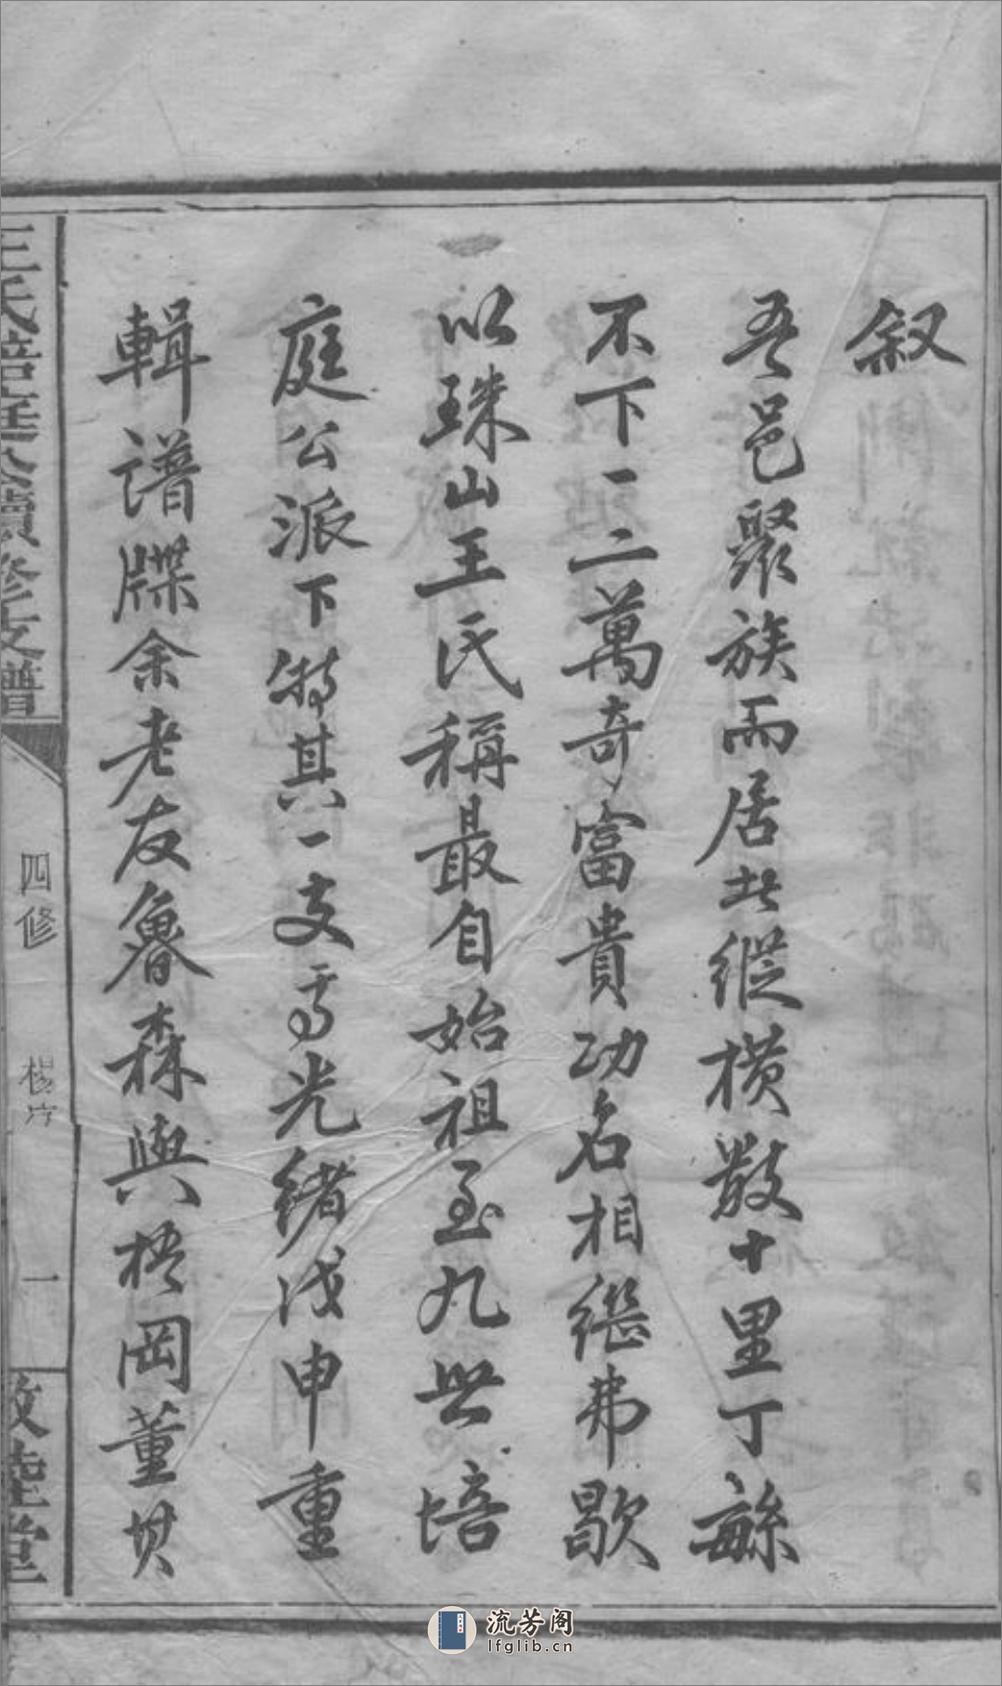 叙
吾邑聚族而居北縱横數十里丁繇
不下一二萬奇富貴功名相繼弗歇
以珠山王氏稱最自始祖至九世培
庭公派下特其一支焉光緒戊申重
輯譜牒余老友魯森與梧岡董其
王氏培庭公續修支譜
四修
楊序
一
敦睦堂
流芳阁
lfglib.cn